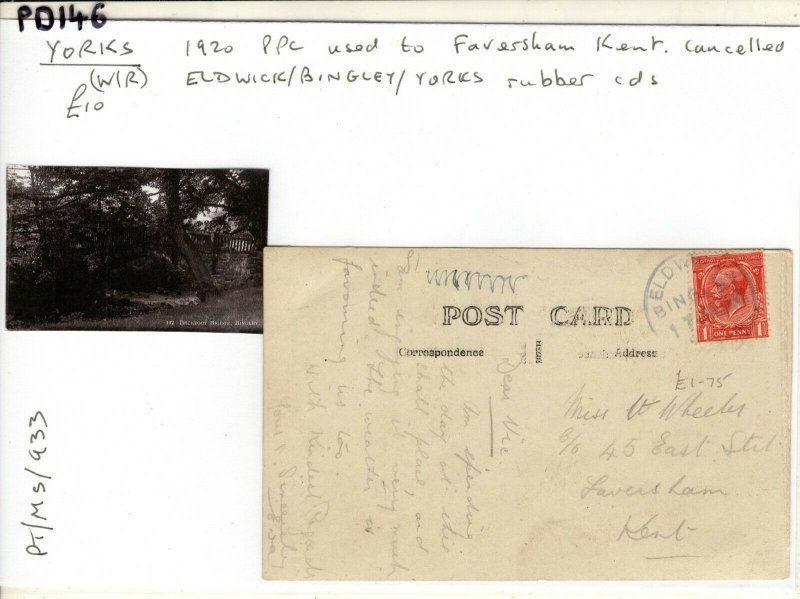 PD146
YORKS 1920 PPC used to Faversham Kent. Cancelled
(W/R) ELDWICK/BINGLEY/YORKS rubber cds
£10
BECKFOOT BRIDGE, BINGLEY.
PT/MS/933
POST CARD
Correspondence
Address
ELDW
BING
ONE PENNY
£1-75
Dear Vic.
Am spending
the day at this
place, and
am enjoying it very much
indeed. The weather is
favouring us too.
With Kindest Regards
Yours Sincerely
Miss V Wheeler
c/o 45 East Strt
Faversham
Kent